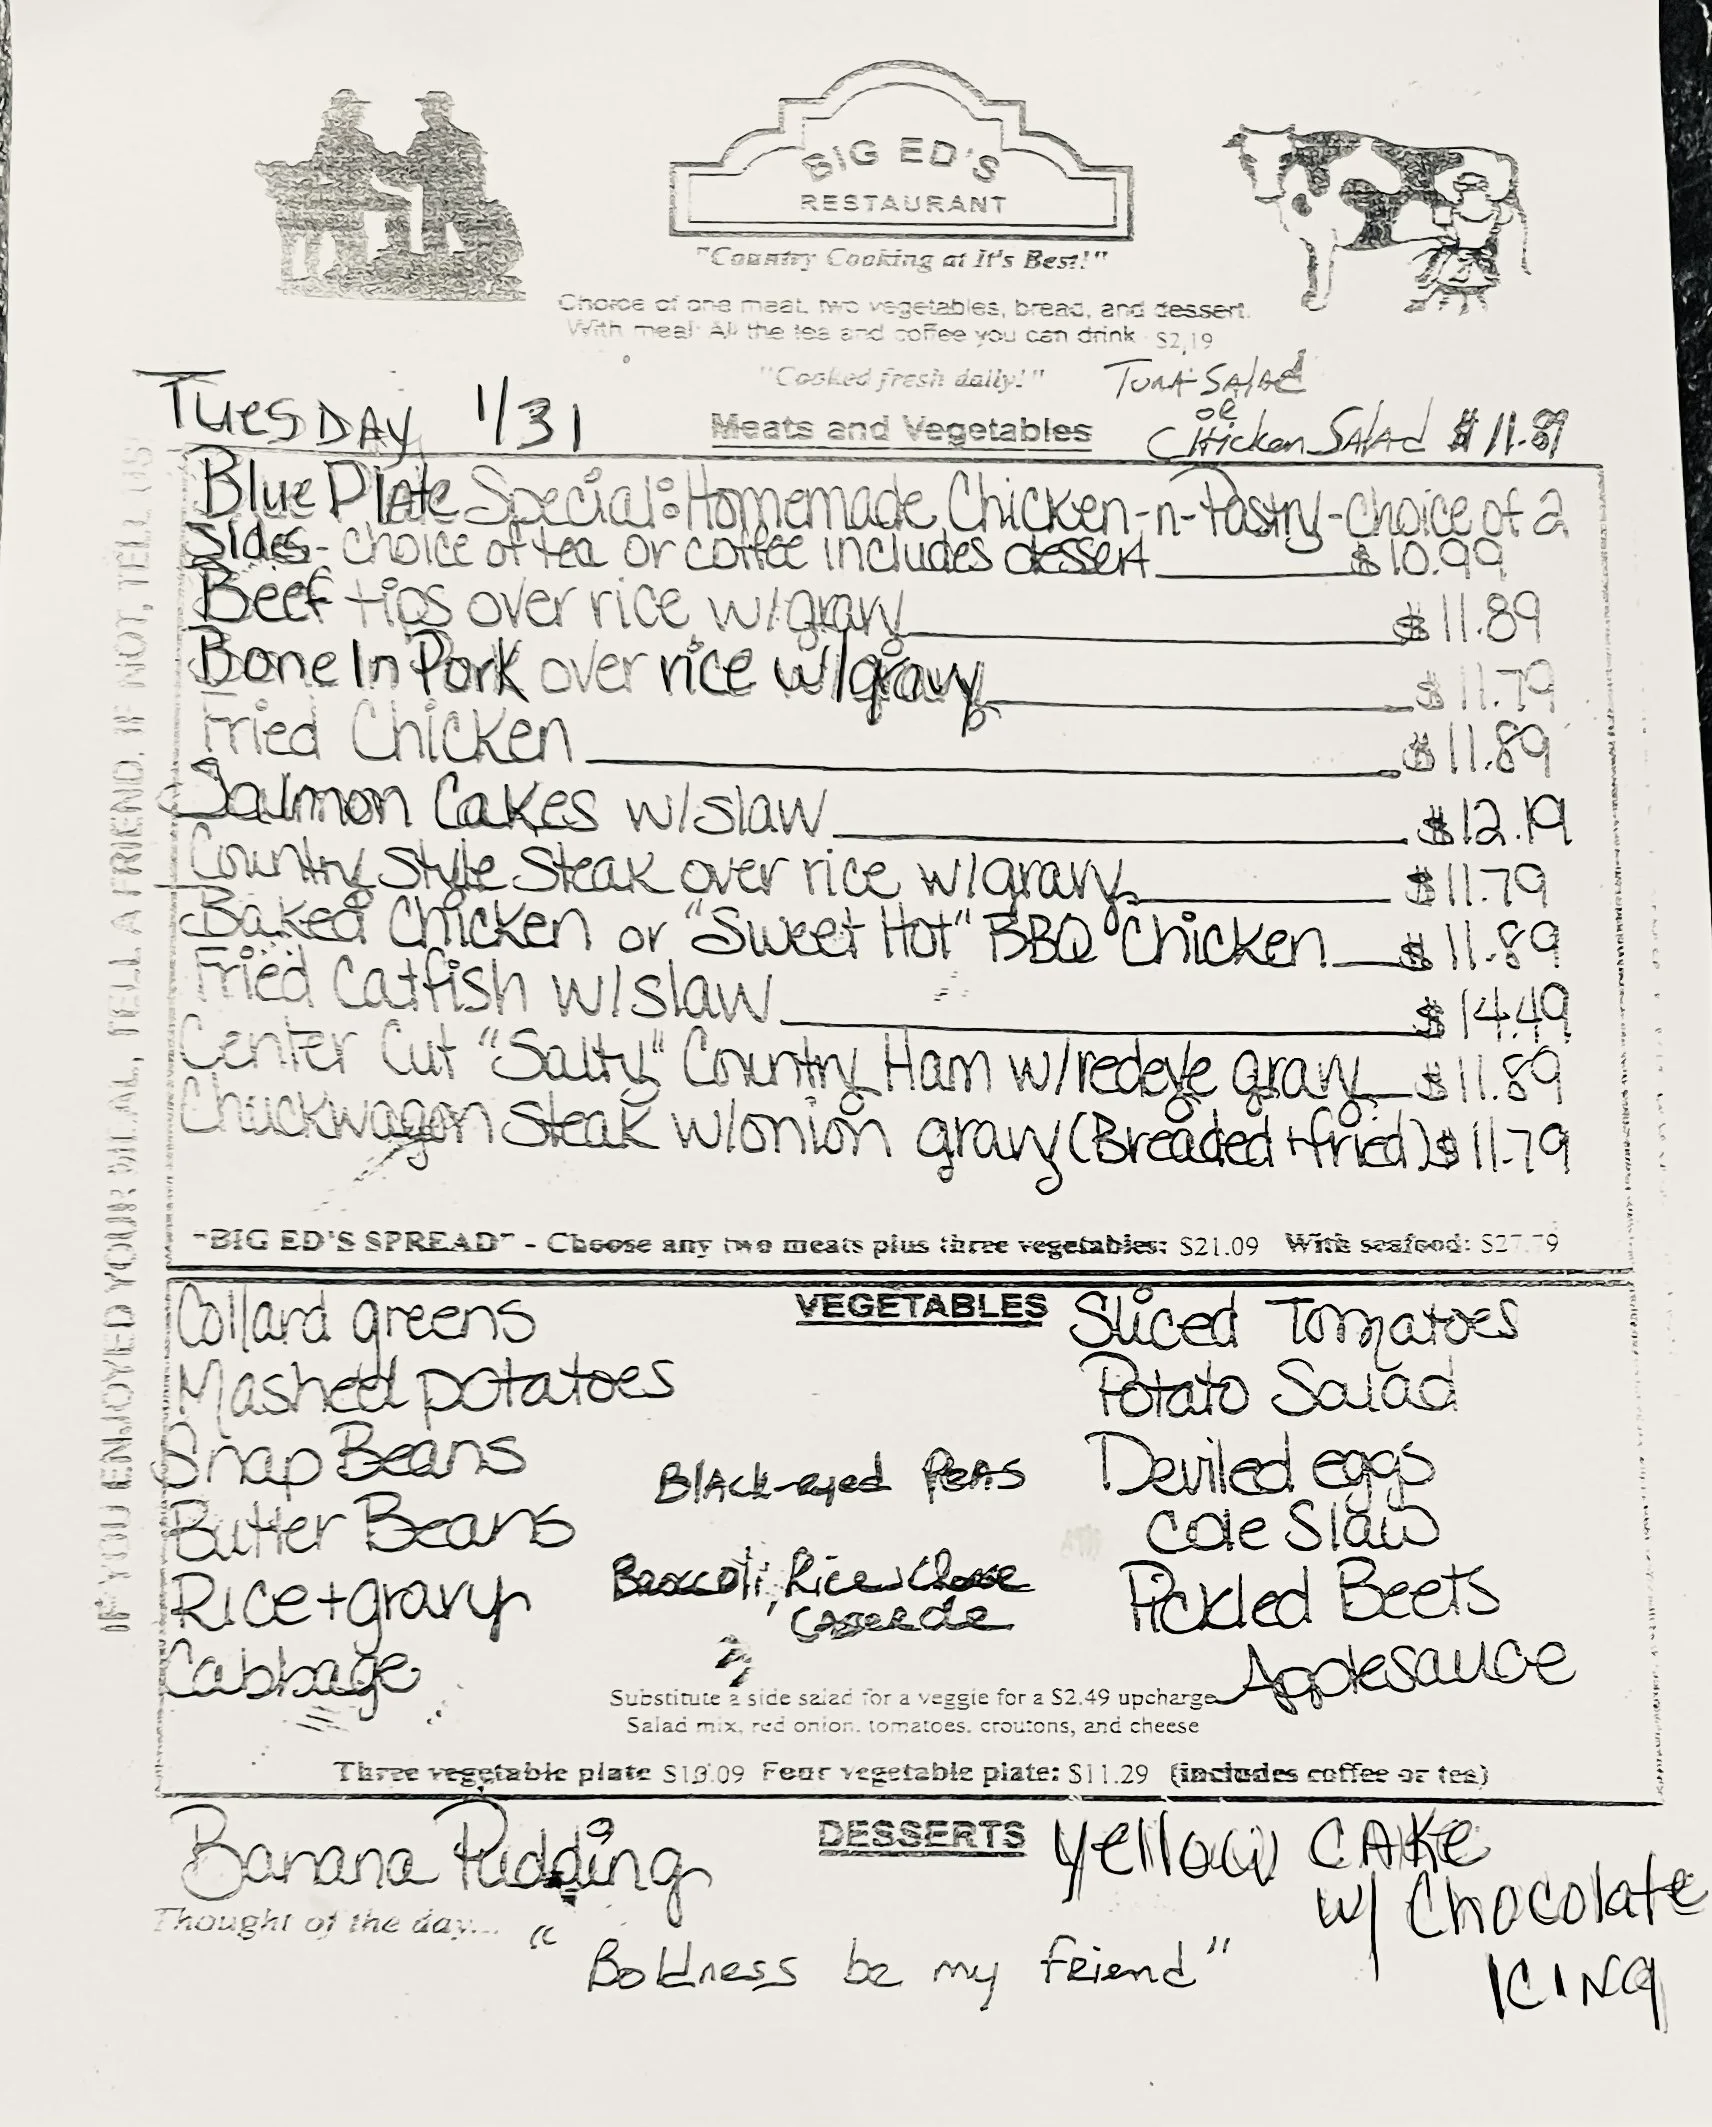 BIG ED'S
RESTAURANT
"Country Cooking at It's Best!"
Choice of one meat, two vegetables, bread, and dessert.
With meal: All the tea and coffee you can drink $2.19
"Cooked fresh daily!"
Tuna Salad
or
Chicken Salad $11.89
TUESDAY 1/31
Meats and Vegetables
Blue Plate Special: Homemade Chicken-n-Pastry-choice of 2
Sides- choice of tea or coffee includes dessert $10.99
Beef tips over rice w/gravy $11.89
Bone In Pork over rice w/gravy $11.79
Fried Chicken $11.89
Salmon Cakes w/slaw $12.19
Country Style Steak over rice w/gravy $11.79
Baked Chicken or "Sweet Hot" BBQ Chicken $11.89
Fried Catfish w/slaw $14.49
Center Cut "Salty" Country Ham w/redeye gravy $11.89
Chuckwagon Steak w/onion gravy (Breaded + fried) $11.79
"BIG ED'S SPREAD" - Choose any two meats plus three vegetables: $21.09 With seafood:
VEGETABLES
Collard greens
Mashed potatoes
Snap Beans
Butter Beans
Rice + gravy
Cabbage
Black-eyed Peas
Broccoli, Rice + Cheese
Casserole
Sliced Tomatoes
Potato Salad
Deviled eggs
Cole Slaw
Pickled Beets
Applesauce
Substitute a side salad for a veggie for a $2.49 upcharge
Salad mix, red onion, tomatoes, croutons, and cheese
Three vegetable plate $10.09 Four vegetable plate: $11.29 (includes coffee or tea)
DESSERTS
Banana Pudding
Yellow CAKE
w/ Chocolate
ICING
Thought of the day...
"Boldness be my friend"
IF YOU ENJOYED YOUR MEAL, TELL A FRIEND. IF NOT, TELL US!